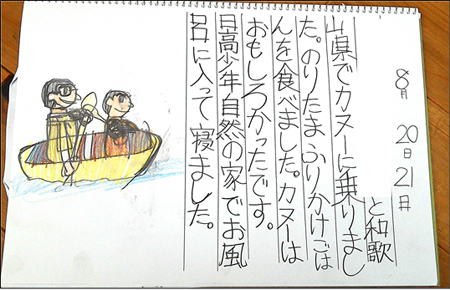 8月20日21日
と和歌
山県でカヌーに乗りまし
た。のりたまふりかけごは
んを食べました。カヌーは
おもしろかったです。
日高少年自然の家でお風
呂に入って寝ました。